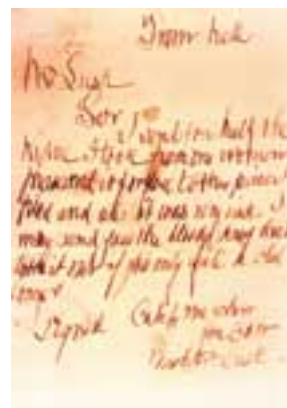 From hell
Mr Lusk
Sor
I send you half the
Kidne I took from one women
prasarved it for you tother piece I
fried and ate it was very nise I
may send you the bloody knif that
took it out if you only wate a whil
longer
signed Catch me when
you can
Mishter Lusk